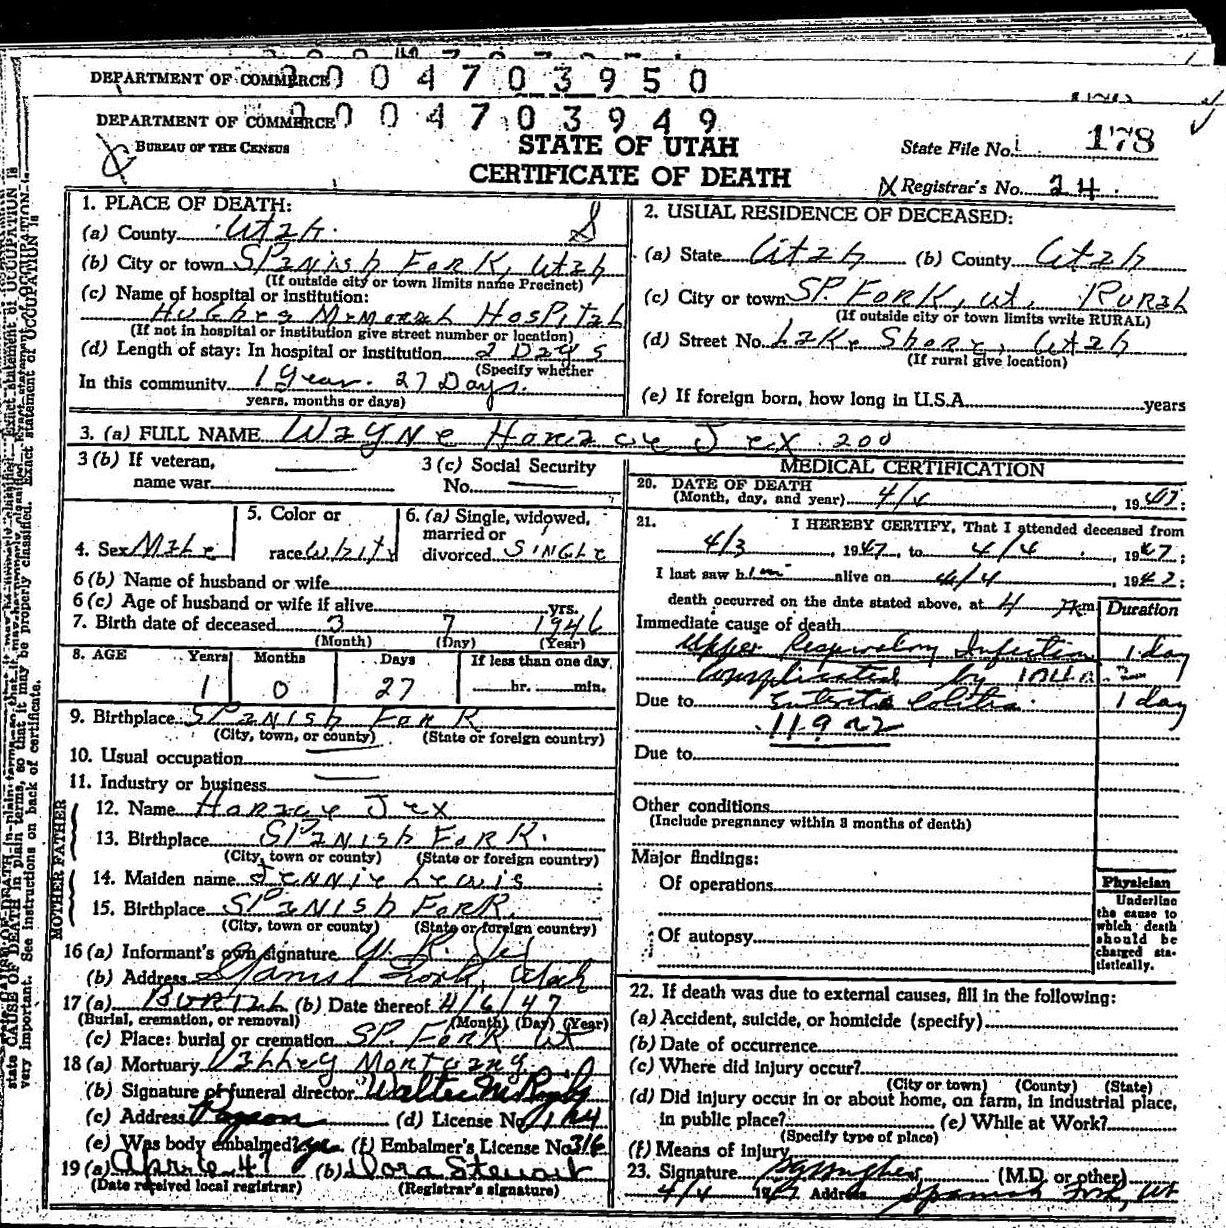 DEPARTMENT OF COMMERCE 0004703950
DEPARTMENT OF COMMERCE 0004703949
BUREAU OF THE CENSUS
STATE OF UTAH
CERTIFICATE OF DEATH
State File No. 178
X Registrar's No. 24
1. PLACE OF DEATH:
(a) County Utah S
(b) City or town Spanish Fork, Utah
(If outside city or town limits name Precinct)
(c) Name of hospital or institution:
Hughes Memorial Hospital
(If not in hospital or institution give street number or location)
(d) Length of stay: In hospital or institution 2 Days
(Specify whether
In this community 1 Year. 27 Days.
years, months or days)
2. USUAL RESIDENCE OF DECEASED:
(a) State Utah (b) County Utah
(c) City or town SP. Fork, Ut. Rural
(If outside city or town limits write RURAL)
(d) Street No. Lake Shore, Utah
(If rural give location)
(e) If foreign born, how long in U.S.A. years
3. (a) FULL NAME Wayne Horace Jex 200
3 (b) If veteran,
name war
3 (c) Social Security
No.
4. Sex Male
5. Color or
race White
6. (a) Single, widowed,
married or
divorced Single
6 (b) Name of husband or wife
6 (c) Age of husband or wife if alive yrs.
7. Birth date of deceased 3 7 1946
(Month) (Day) (Year)
8. AGE Years Months Days If less than one day
1 0 27 hr. min.
9. Birthplace Spanish Fork
(City, town, or county) (State or foreign country)
10. Usual occupation
11. Industry or business
FATHER
12. Name Horace Jex
13. Birthplace Spanish Fork.
(City, town or county) (State or foreign country)
MOTHER
14. Maiden name Jennie Lewis
15. Birthplace Spanish Fork.
(City, town or county) (State or foreign country)
16 (a) Informant's own signature W. R. Jex
(b) Address Spanish Fork, Utah
17 (a) Burial (b) Date thereof 4/6/47
(Burial, cremation, or removal) (Month) (Day) (Year)
(c) Place: burial or cremation SP. Fork Ut
18 (a) Mortuary Valley Mortuary
(b) Signature of funeral director Walter
(c) Address Payson (d) License No. 1
(e) Was body embalmed? yes (f) Embalmer's License No. 316
19 (a) April 6-47 (b) Dora Stewart
(Date received local registrar) (Registrar's signature)
MEDICAL CERTIFICATION
20. DATE OF DEATH
(Month, day, and year) 4/4, 1947;
21. I HEREBY CERTIFY, That I attended deceased from
4/3, 1947, to 4/4, 1947;
I last saw him alive on 4/4, 1947;
death occurred on the date stated above, at 4 m.
Duration
Immediate cause of death
Upper Respiratory Infection 1 day
Complicated by
Due to Entero Colitis. 1 day
119 a 2
Due to
Other conditions
(Include pregnancy within 3 months of death)
Major findings:
Of operations
Of autopsy
Physician
Underline
the cause to
which death
should be
charged sta-
tistically.
22. If death was due to external causes, fill in the following:
(a) Accident, suicide, or homicide (specify)
(b) Date of occurrence
(c) Where did injury occur?
(City or town) (County) (State)
(d) Did injury occur in or about home, on farm, in industrial place,
in public place? (e) While at Work?
(Specify type of place)
(f) Means of injury
23. Signature (M.D. or other)
4/4 1947 Address Spanish Fork, Ut
state CAUSE OF DEATH in plain terms, so that it may be properly classified. Exact statement of OCCUPATION is
very important. See instructions on back of certificate.